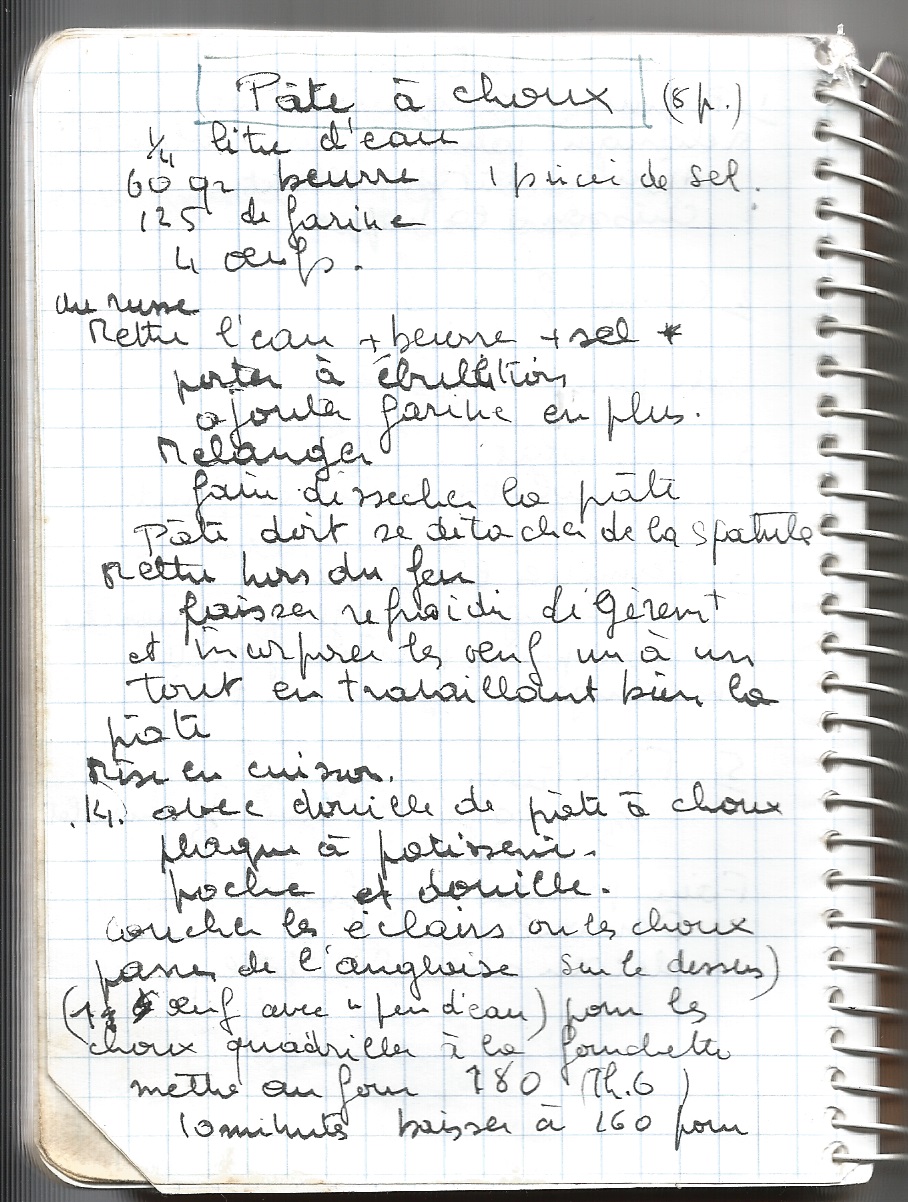 Pâte à choux (6 p.)
1/4 litre d'eau
60 gr beurre 1 pincée de sel.
125 de farine
4 oeufs.
du russe
Mettre l'eau + beurre + sel *
porter à ébullition
ajouter farine en plus.
Mélanger
faire dissecher la pâte
Pâte doit se détacher de la spatule
Mettre hors du feu
laisser refroidir légèremt
et incorporer les oeuf un à un
tout en travaillant bien la
pâte
Mise en cuisson.
avec douille de pâte à choux
plaque à patisserie.
poche et douille.
Coucher les éclairs ou les choux
passer de l'angloise sur le dessus)
(1 oeuf avec un peu d'eau) pour les
choux quadriller à la fourchette
mettre au four 180 (Th.6)
10 minutes baisser à 160 pour